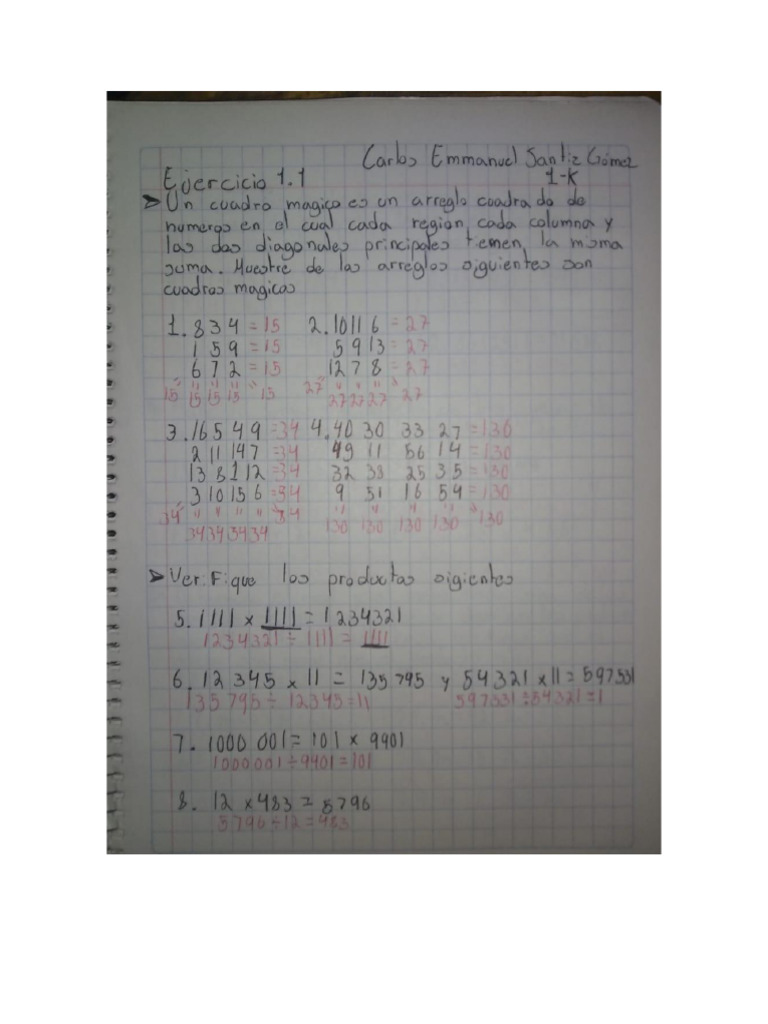 Carlos Emmanuel Santiz Gómez
Ejercicio 1.1 1-K
➤ Un cuadro magico es un arreglo cuadrado de
numeros en el cual cada region, cada columna y
las dos diagonales principales tienen la misma
suma. Muestre de los arreglos siguientes son
cuadros magicos
1. 8 3 4 = 15 2. 10 11 6 = 27
1 5 9 = 15 5 9 13 = 27
6 7 2 = 15 12 7 8 = 27
15 15 15 15 15 27 27 27 27 27
3. 16 5 4 9 = 34 4. 40 30 33 27 = 130
2 11 14 7 = 34 49 11 56 14 = 130
13 8 1 12 = 34 32 38 25 35 = 130
3 10 15 6 = 34 9 51 16 54 = 130
34 34 34 34 34 34 130 130 130 130 130
➤ Verifique los productos sigientes
5. 1111 x 1111 = 1234321
1234321 ÷ 1111 = 1111
6. 12 345 x 11 = 135 795 y 54 321 x 11 = 597531
135 795 ÷ 12345 = 11 597531 ÷ 54321 = 1
7. 1000 001 = 101 x 9901
1000001 ÷ 9901 = 101
8. 12 x 483 = 5796
5796 ÷ 12 = 483